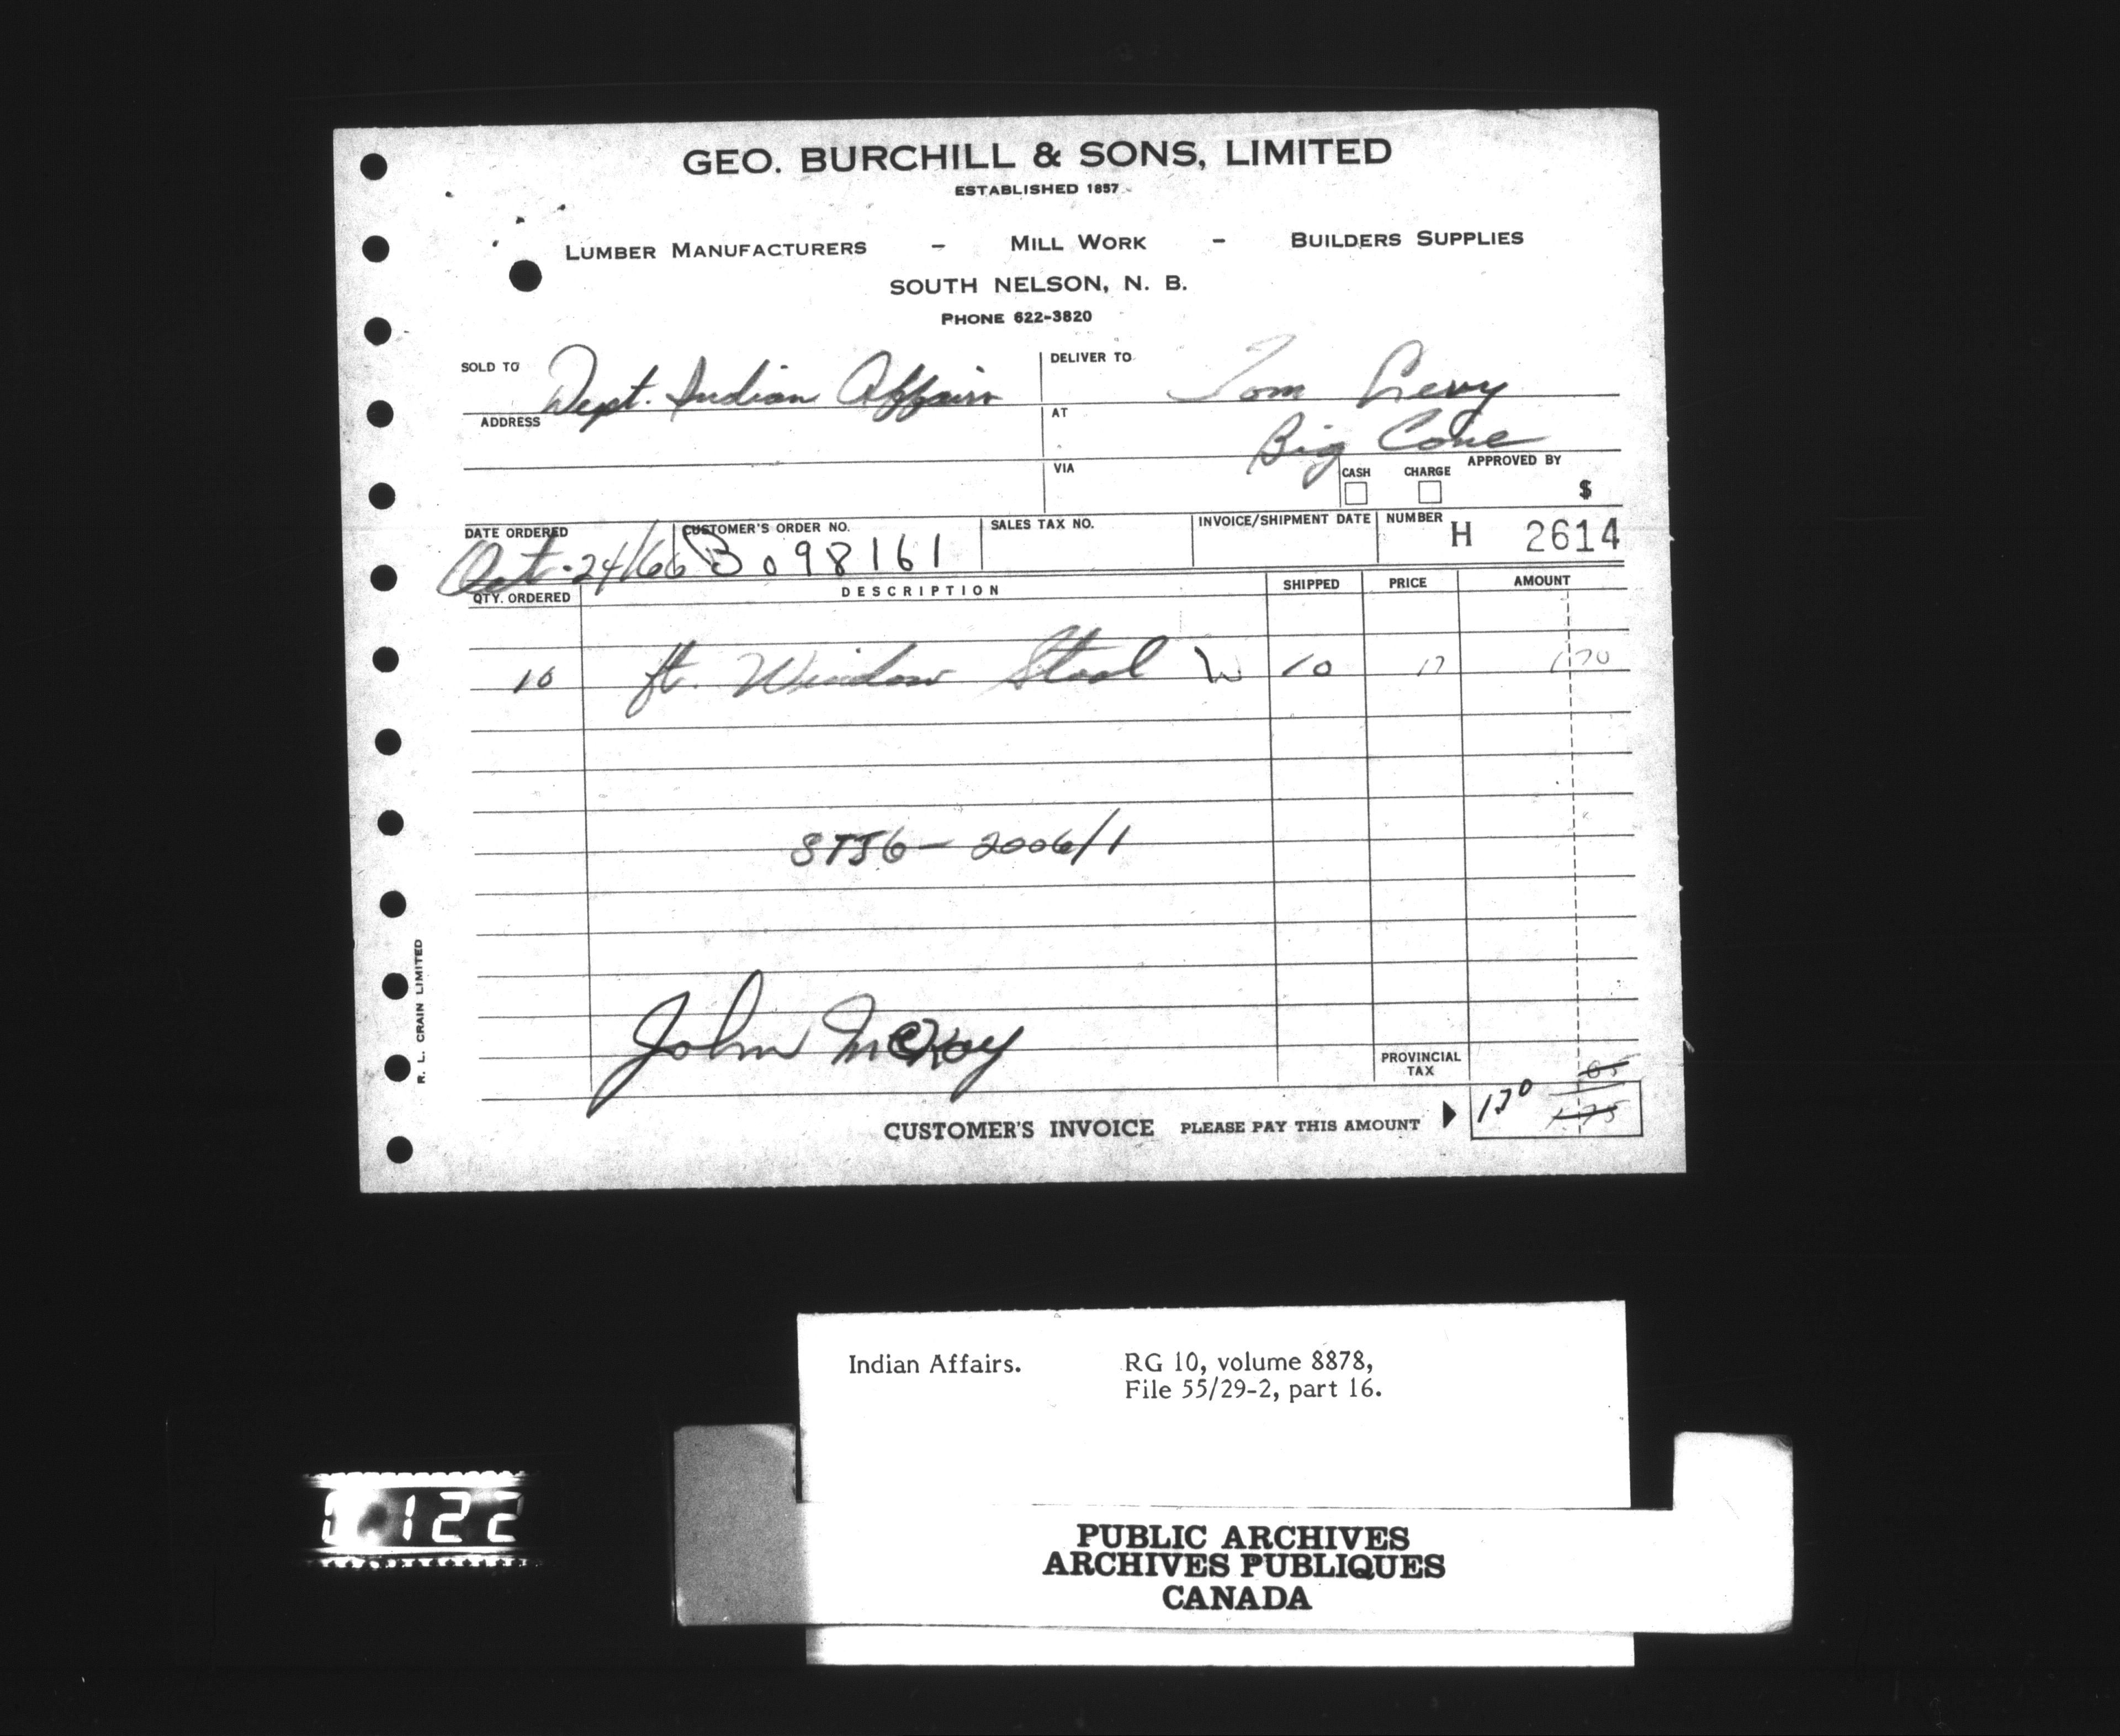 GEO. BURCHILL & SONS, LIMITED
ESTABLISHED 1857
LUMBER MANUFACTURERS - MILL WORK - BUILDERS SUPPLIES
SOUTH NELSON, N. B.
PHONE 622-3820
SOLD TO Dept. Indian Affairs DELIVER TO Tom Levy
ADDRESS AT Big Cove
VIA CASH CHARGE APPROVED BY
$
DATE ORDERED CUSTOMER'S ORDER NO. SALES TAX NO. INVOICE/SHIPMENT DATE NUMBER H 2614
Oct. 24/66 B 098161
QTY. ORDERED DESCRIPTION SHIPPED PRICE AMOUNT
10 ft. Window Stool W 10 17 1 70
- 2006/1
John McKoy
PROVINCIAL
TAX 05
CUSTOMER'S INVOICE PLEASE PAY THIS AMOUNT 1 70 1.75
R. L. CRAIN LIMITED
Indian Affairs. RG 10, volume 8878,
File 55/29-2, part 16.
122
PUBLIC ARCHIVES
ARCHIVES PUBLIQUES
CANADA